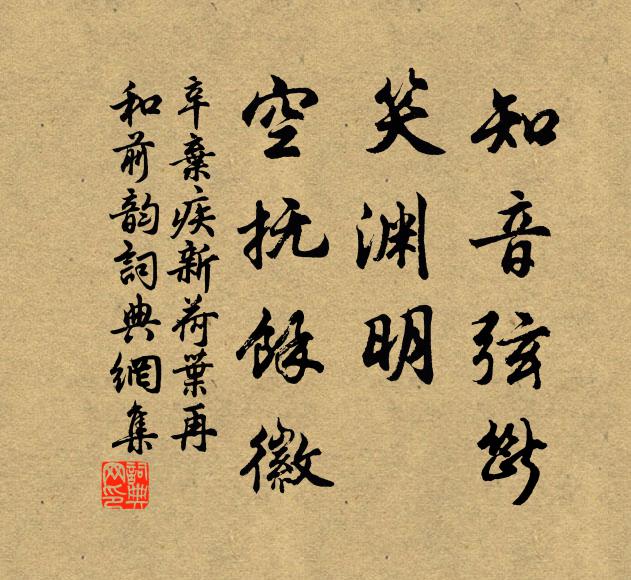 知音弦斷
笑淵明
空抚餘徽
辛棄疾新荷葉再
和前韵詞典網集
詞典网印